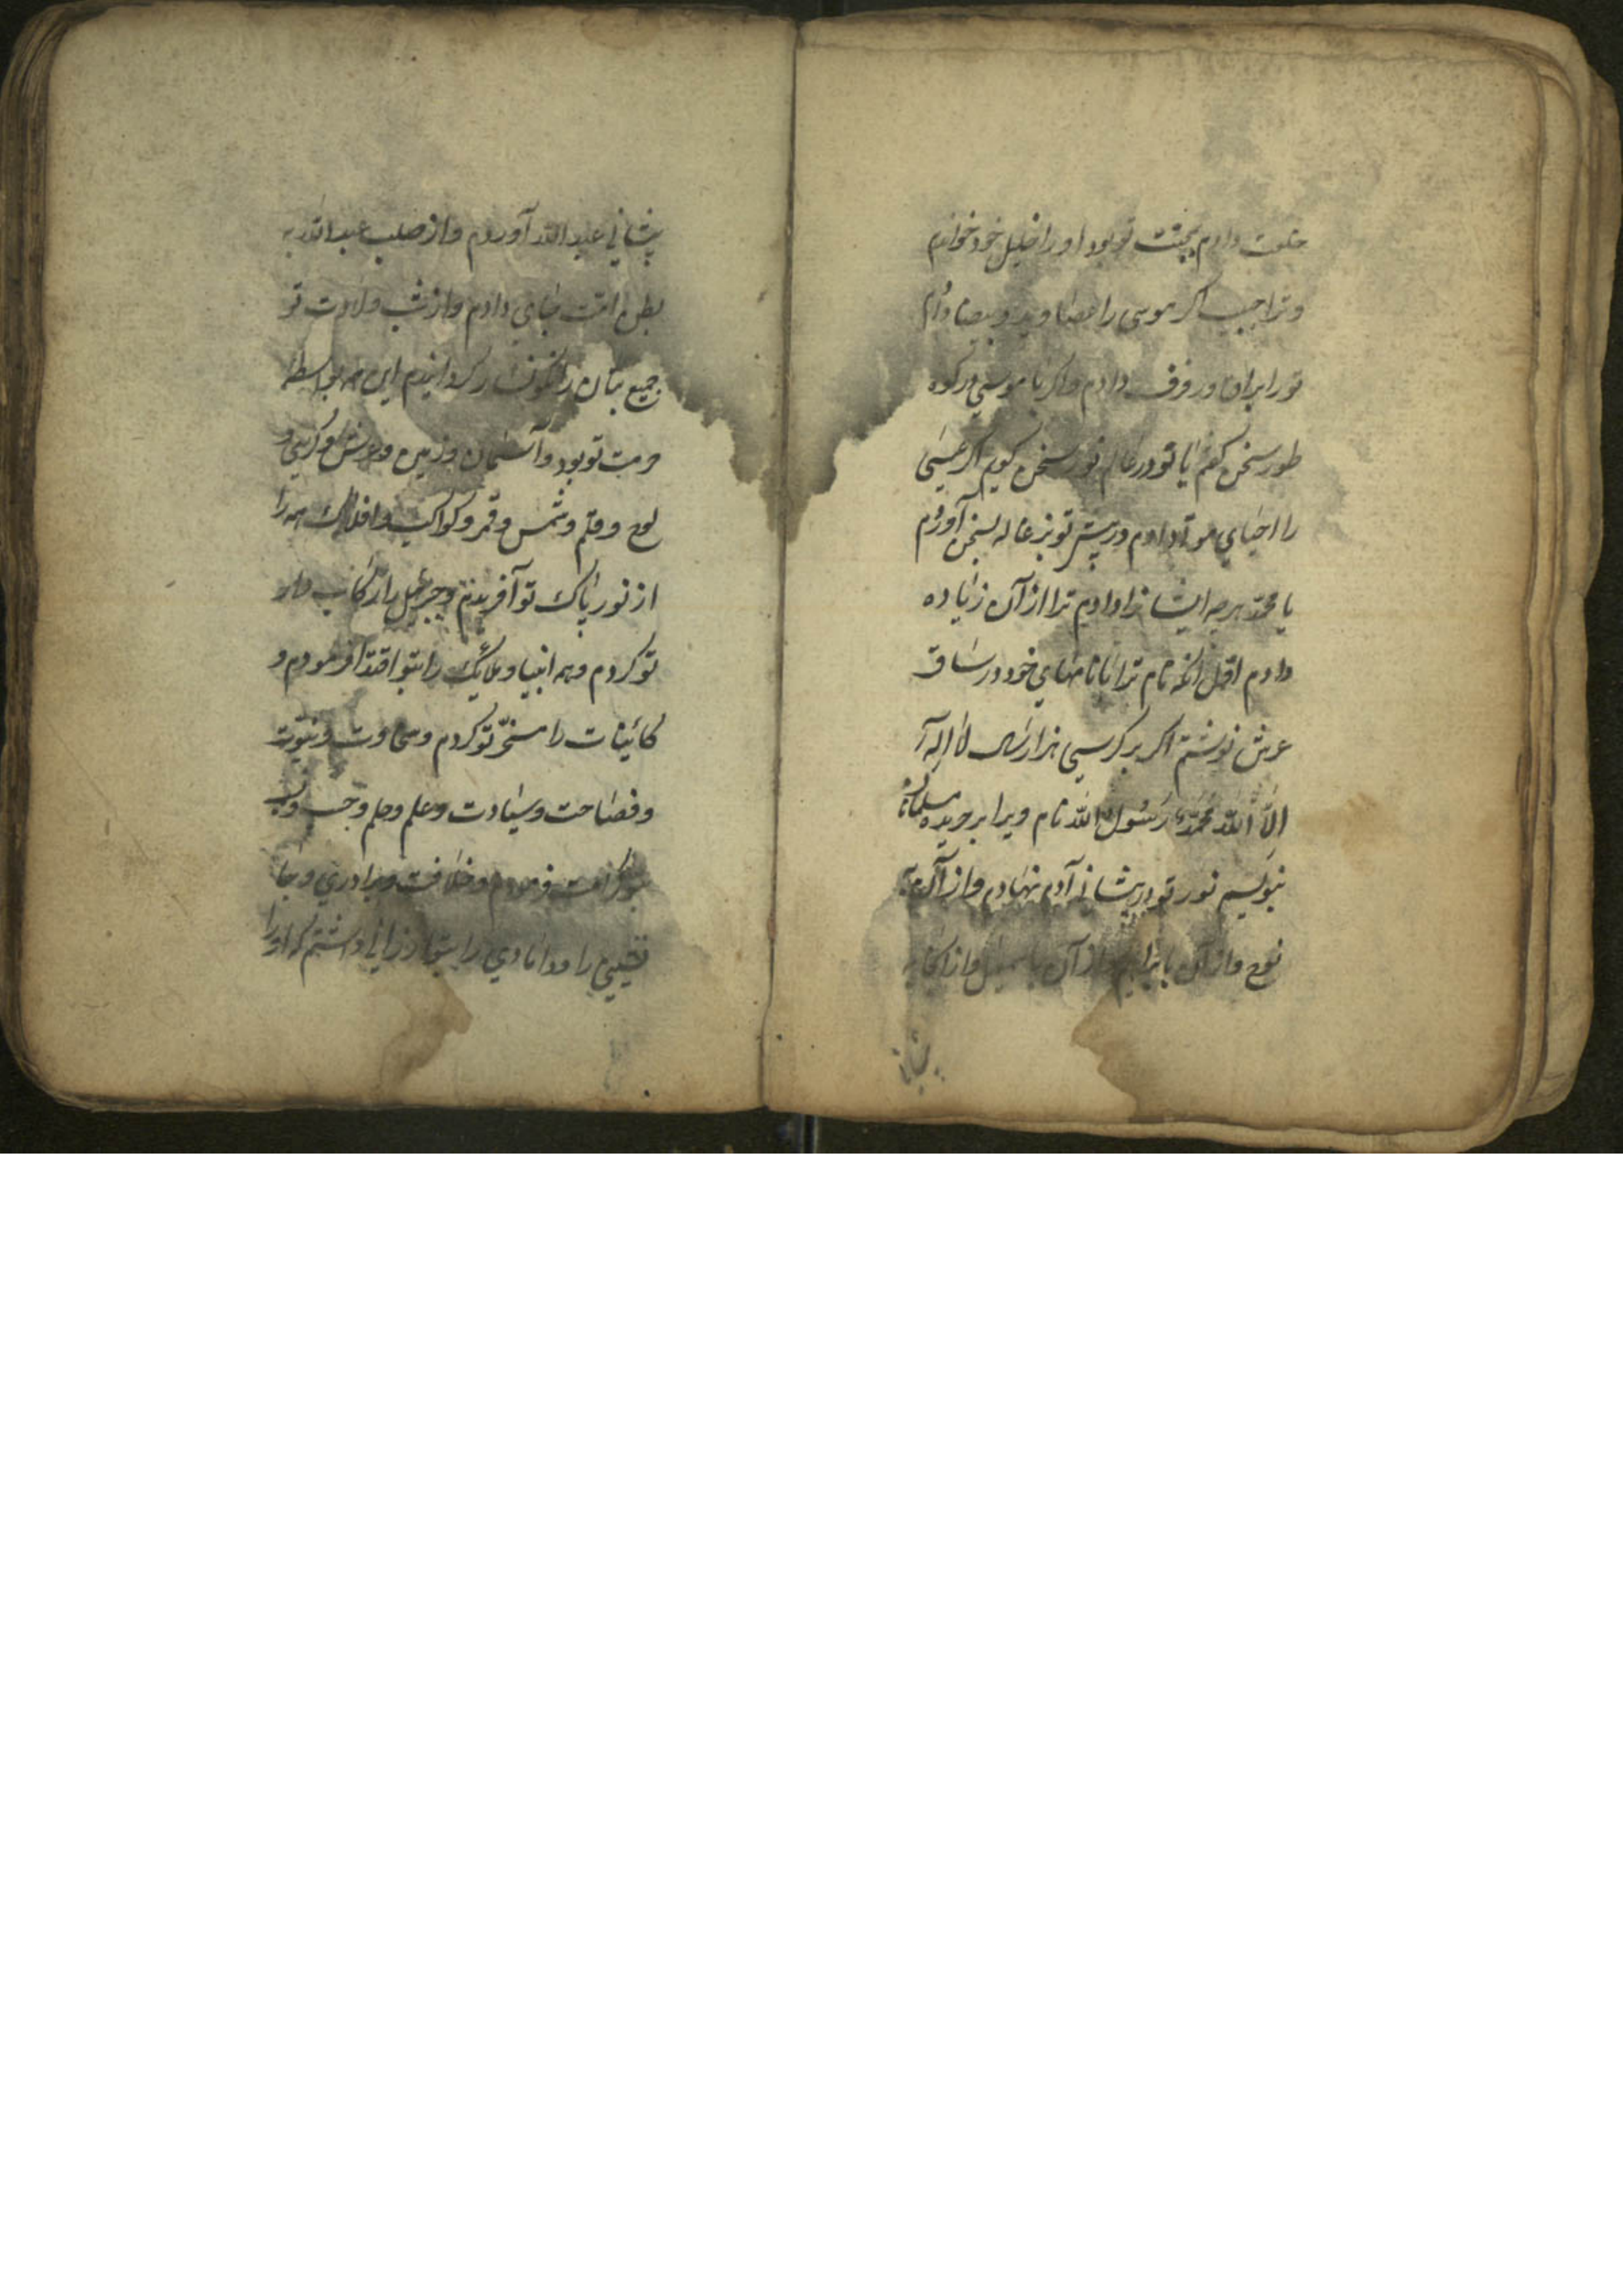 خلت دادم بجهت تو بود او را خلیل خود خواندم
و ترا حبیب اکر موسی را عصا و ید و بیضا دادم
تو را براق و رفرف دادم و اکر با موسی در کوه
طور سخن کفتم با تو در عالم نور سخن کویم اکر عیسی
را احیای موتا دادم در پیش تو بزغاله بسخن آوردم
یا محمد هر چه ایشانرا دادم ترا از آن زیاده
دادم اول آنکه نام ترا با نامهای خود در ساق
عرش نوشتم اکر بر کرسی هزار سال لا اله
الا الله محمد رسول الله نام ویرا بر جریده مسلمانان
بنویسم نور تو در پیشانی آدم نهادم و از آدم به
نوح و از آن بابراهیم و از آن باسمعیل و از آنجا به
پیشانی عبد الله آوردم و از صلب عبد الله به
بطن امنه جای دادم و از شب ولادت تو
جمیع بتان را نکونسار کردانیدم این همه بواسطه
حرمت تو بود و آسمان و زمین و عرش و کرسی و
لوح و قلم و شمس و قمر و کواکب و افلاک همه را
از نور پاک تو آفریدم و جبرئیل را رکاب دار
تو کردم و همه انبیا و ملایک را بتو اقتدا فرمودم و
کائینات را مسخر تو کردم و سخاوت و نبوت
و فصاحت و سیادت و علم و حلم و حسب و نسب
بتو کرامت فرمودم و خلافت و برادری و جا
نشینی را و دامادی را بتو ارزانی داشتم که او را